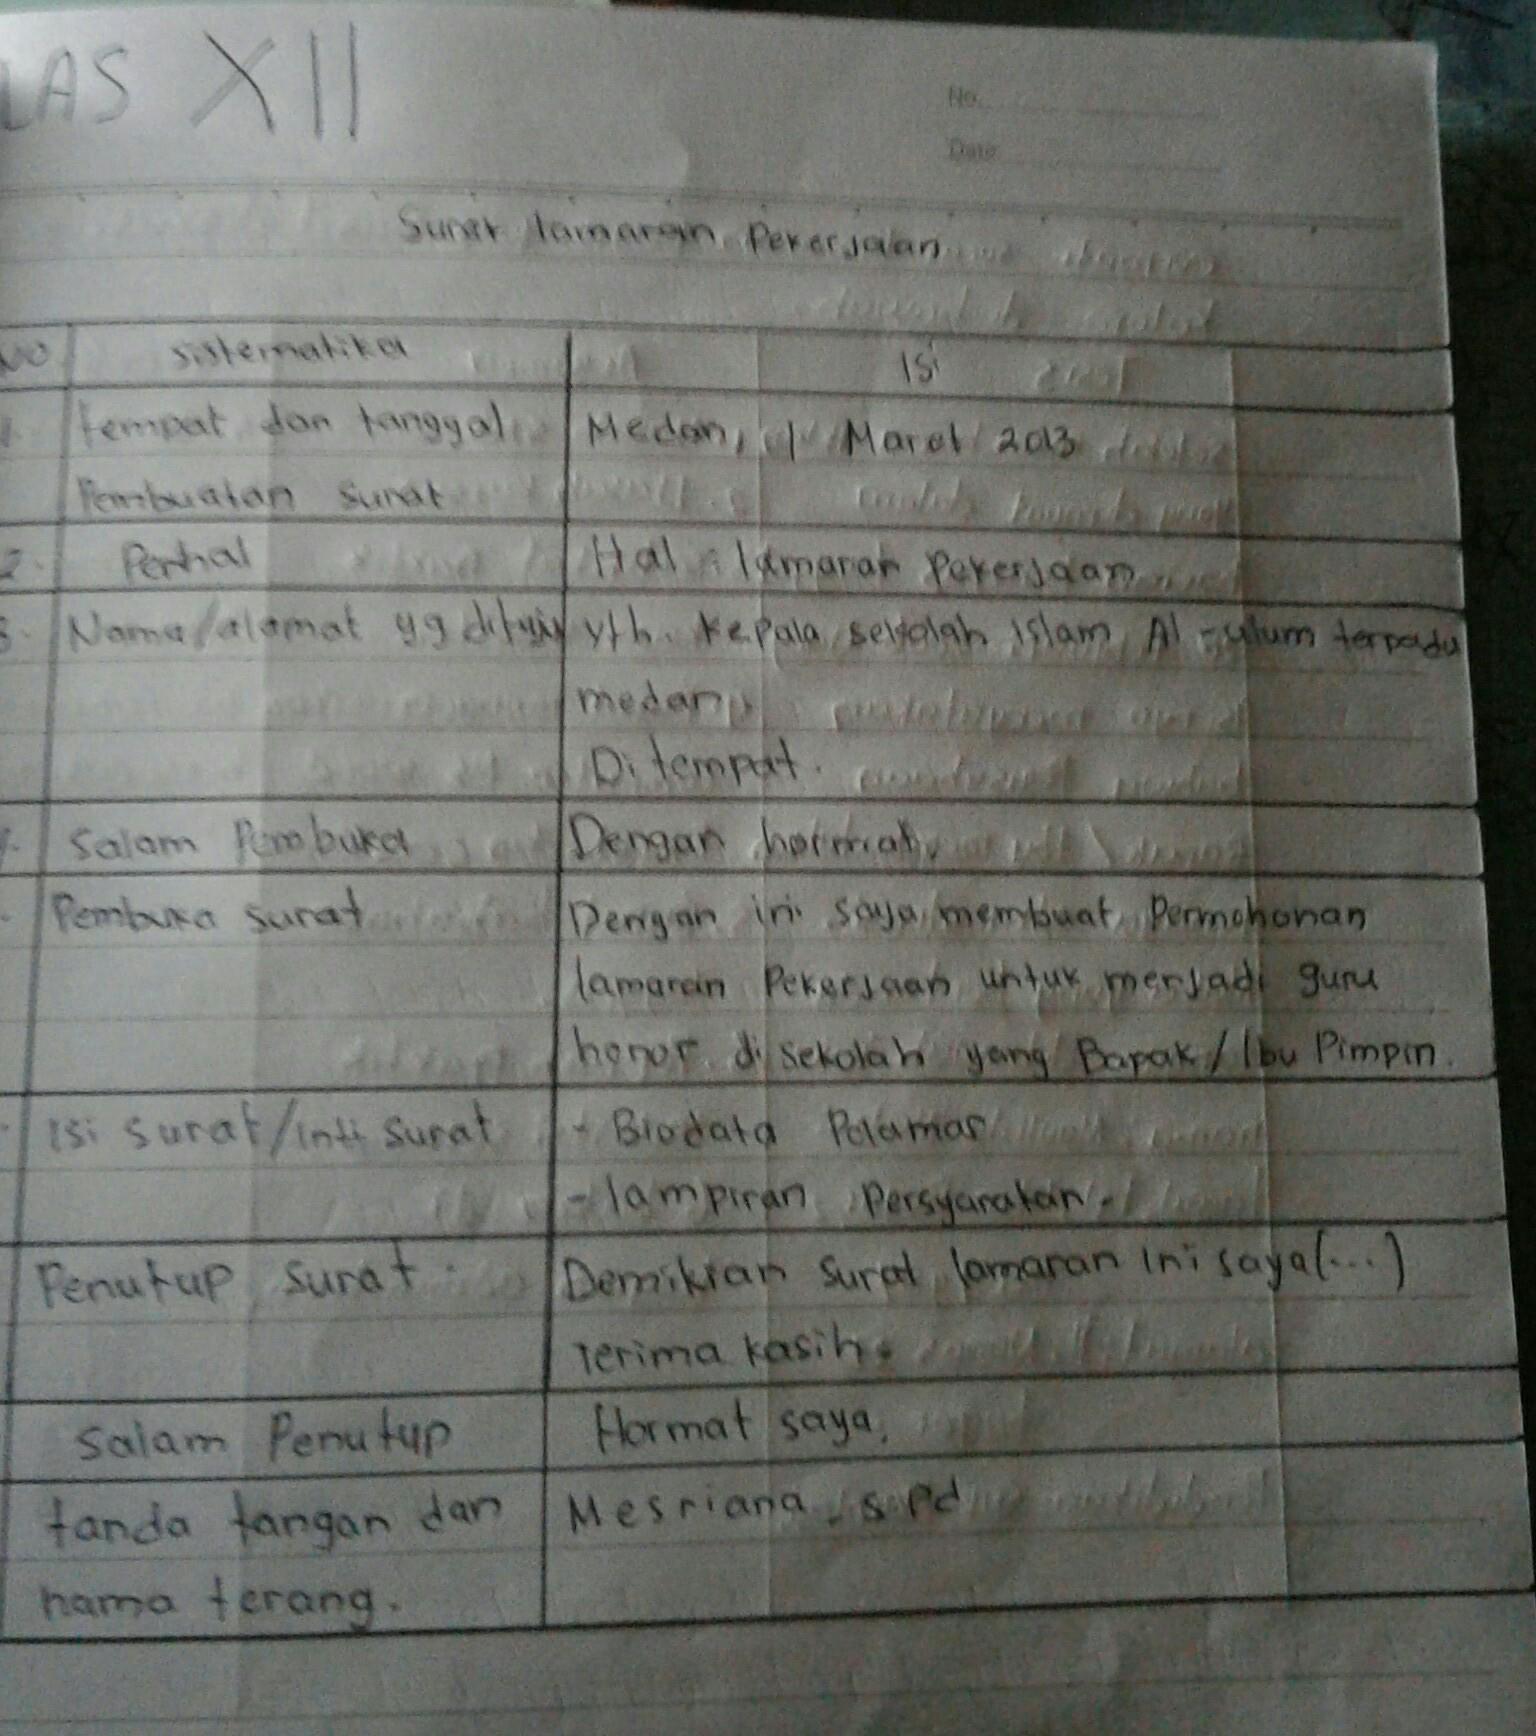 LAS XII
No.
Date
Surat lamaran Pekerjaan
No sistematika Isi
1. tempat dan tanggal Medan, 1 Maret 2013
Pembuatan surat
2. Perihal Hal : lamaran Pekerjaan
3. Nama/alamat yg dituju yth. Kepala sekolah islam Al-ulum terpadu
medan,
Di tempat.
Salam Pembuka Dengan hormat,
Pembuka surat Dengan ini saya membuat Permohonan
lamaran Pekerjaan untuk menjadi guru
honor di sekolah yang Bapak/Ibu Pimpin.
Isi surat/inti surat - Biodata Pelamar
- lampiran Persyaratan.
Penutup surat Demikian Surat lamaran ini saya(...)
Terima kasih.
Salam Penutup Hormat saya,
tanda tangan dan Mesriana, S.Pd
nama terang.